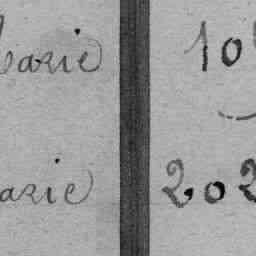 Marie 10
Marie 202